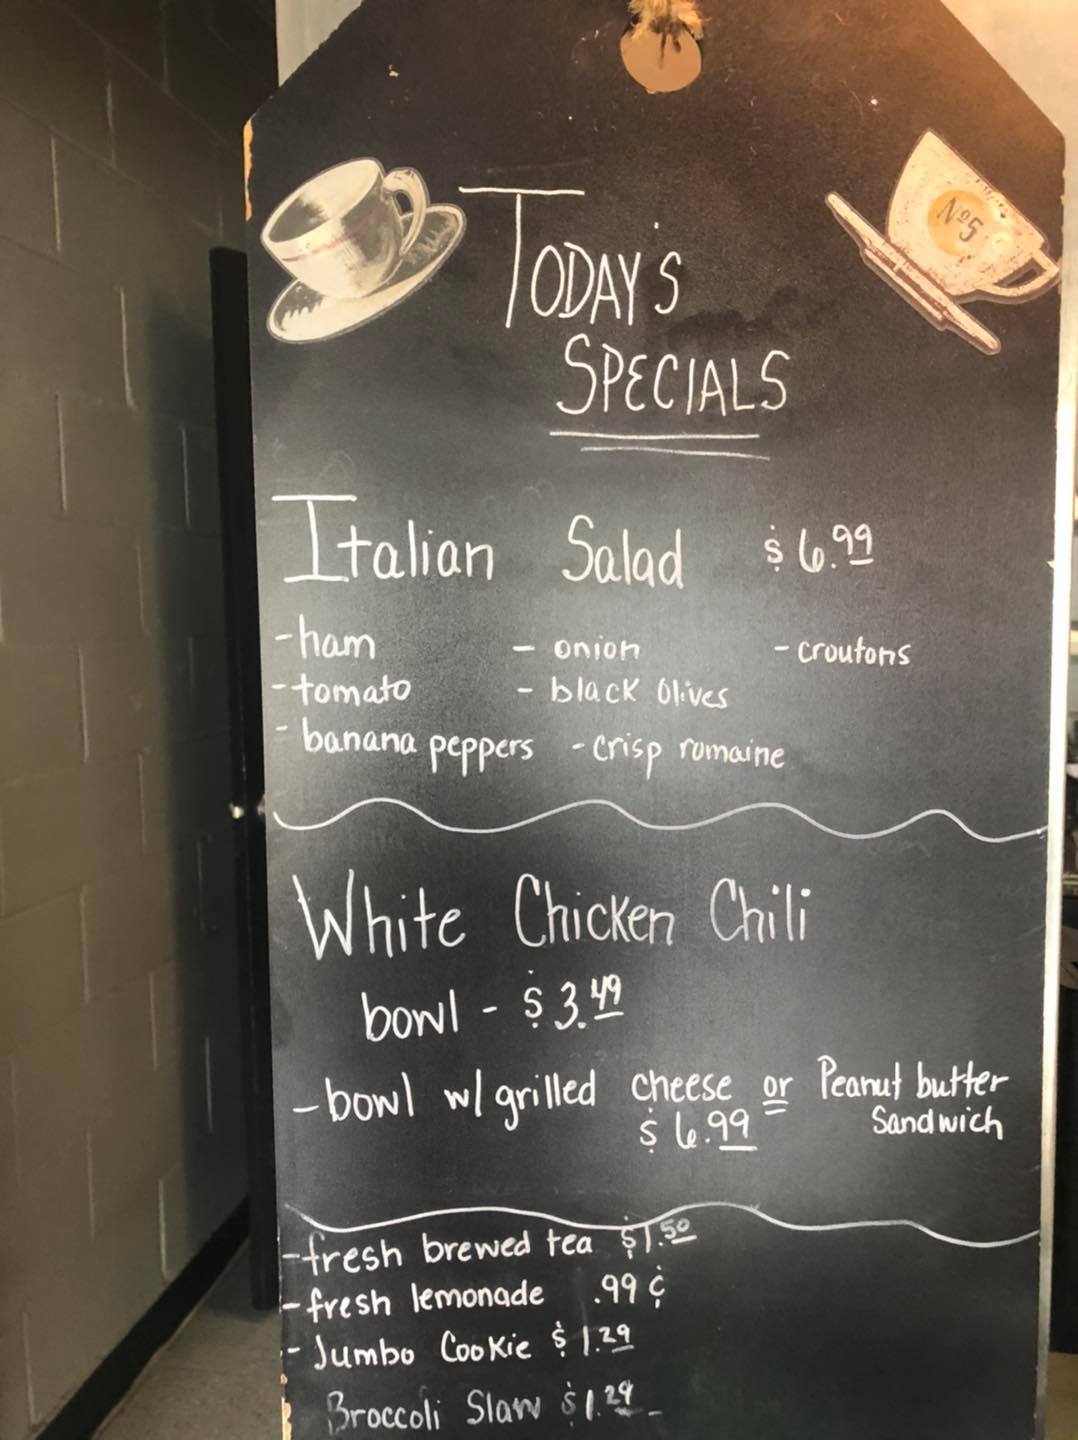 Nº5
TODAY'S
SPECIALS
Italian Salad $6.99
-ham - onion - croutons
-tomato - black Olives
- banana peppers - crisp romaine
White Chicken Chili
bowl - $3.49
- bowl w/ grilled cheese or Peanut butter
$6.99 Sandwich
-fresh brewed tea $1.50
-fresh lemonade .99¢
- Jumbo Cookie $1.29
Broccoli Slaw $1.29